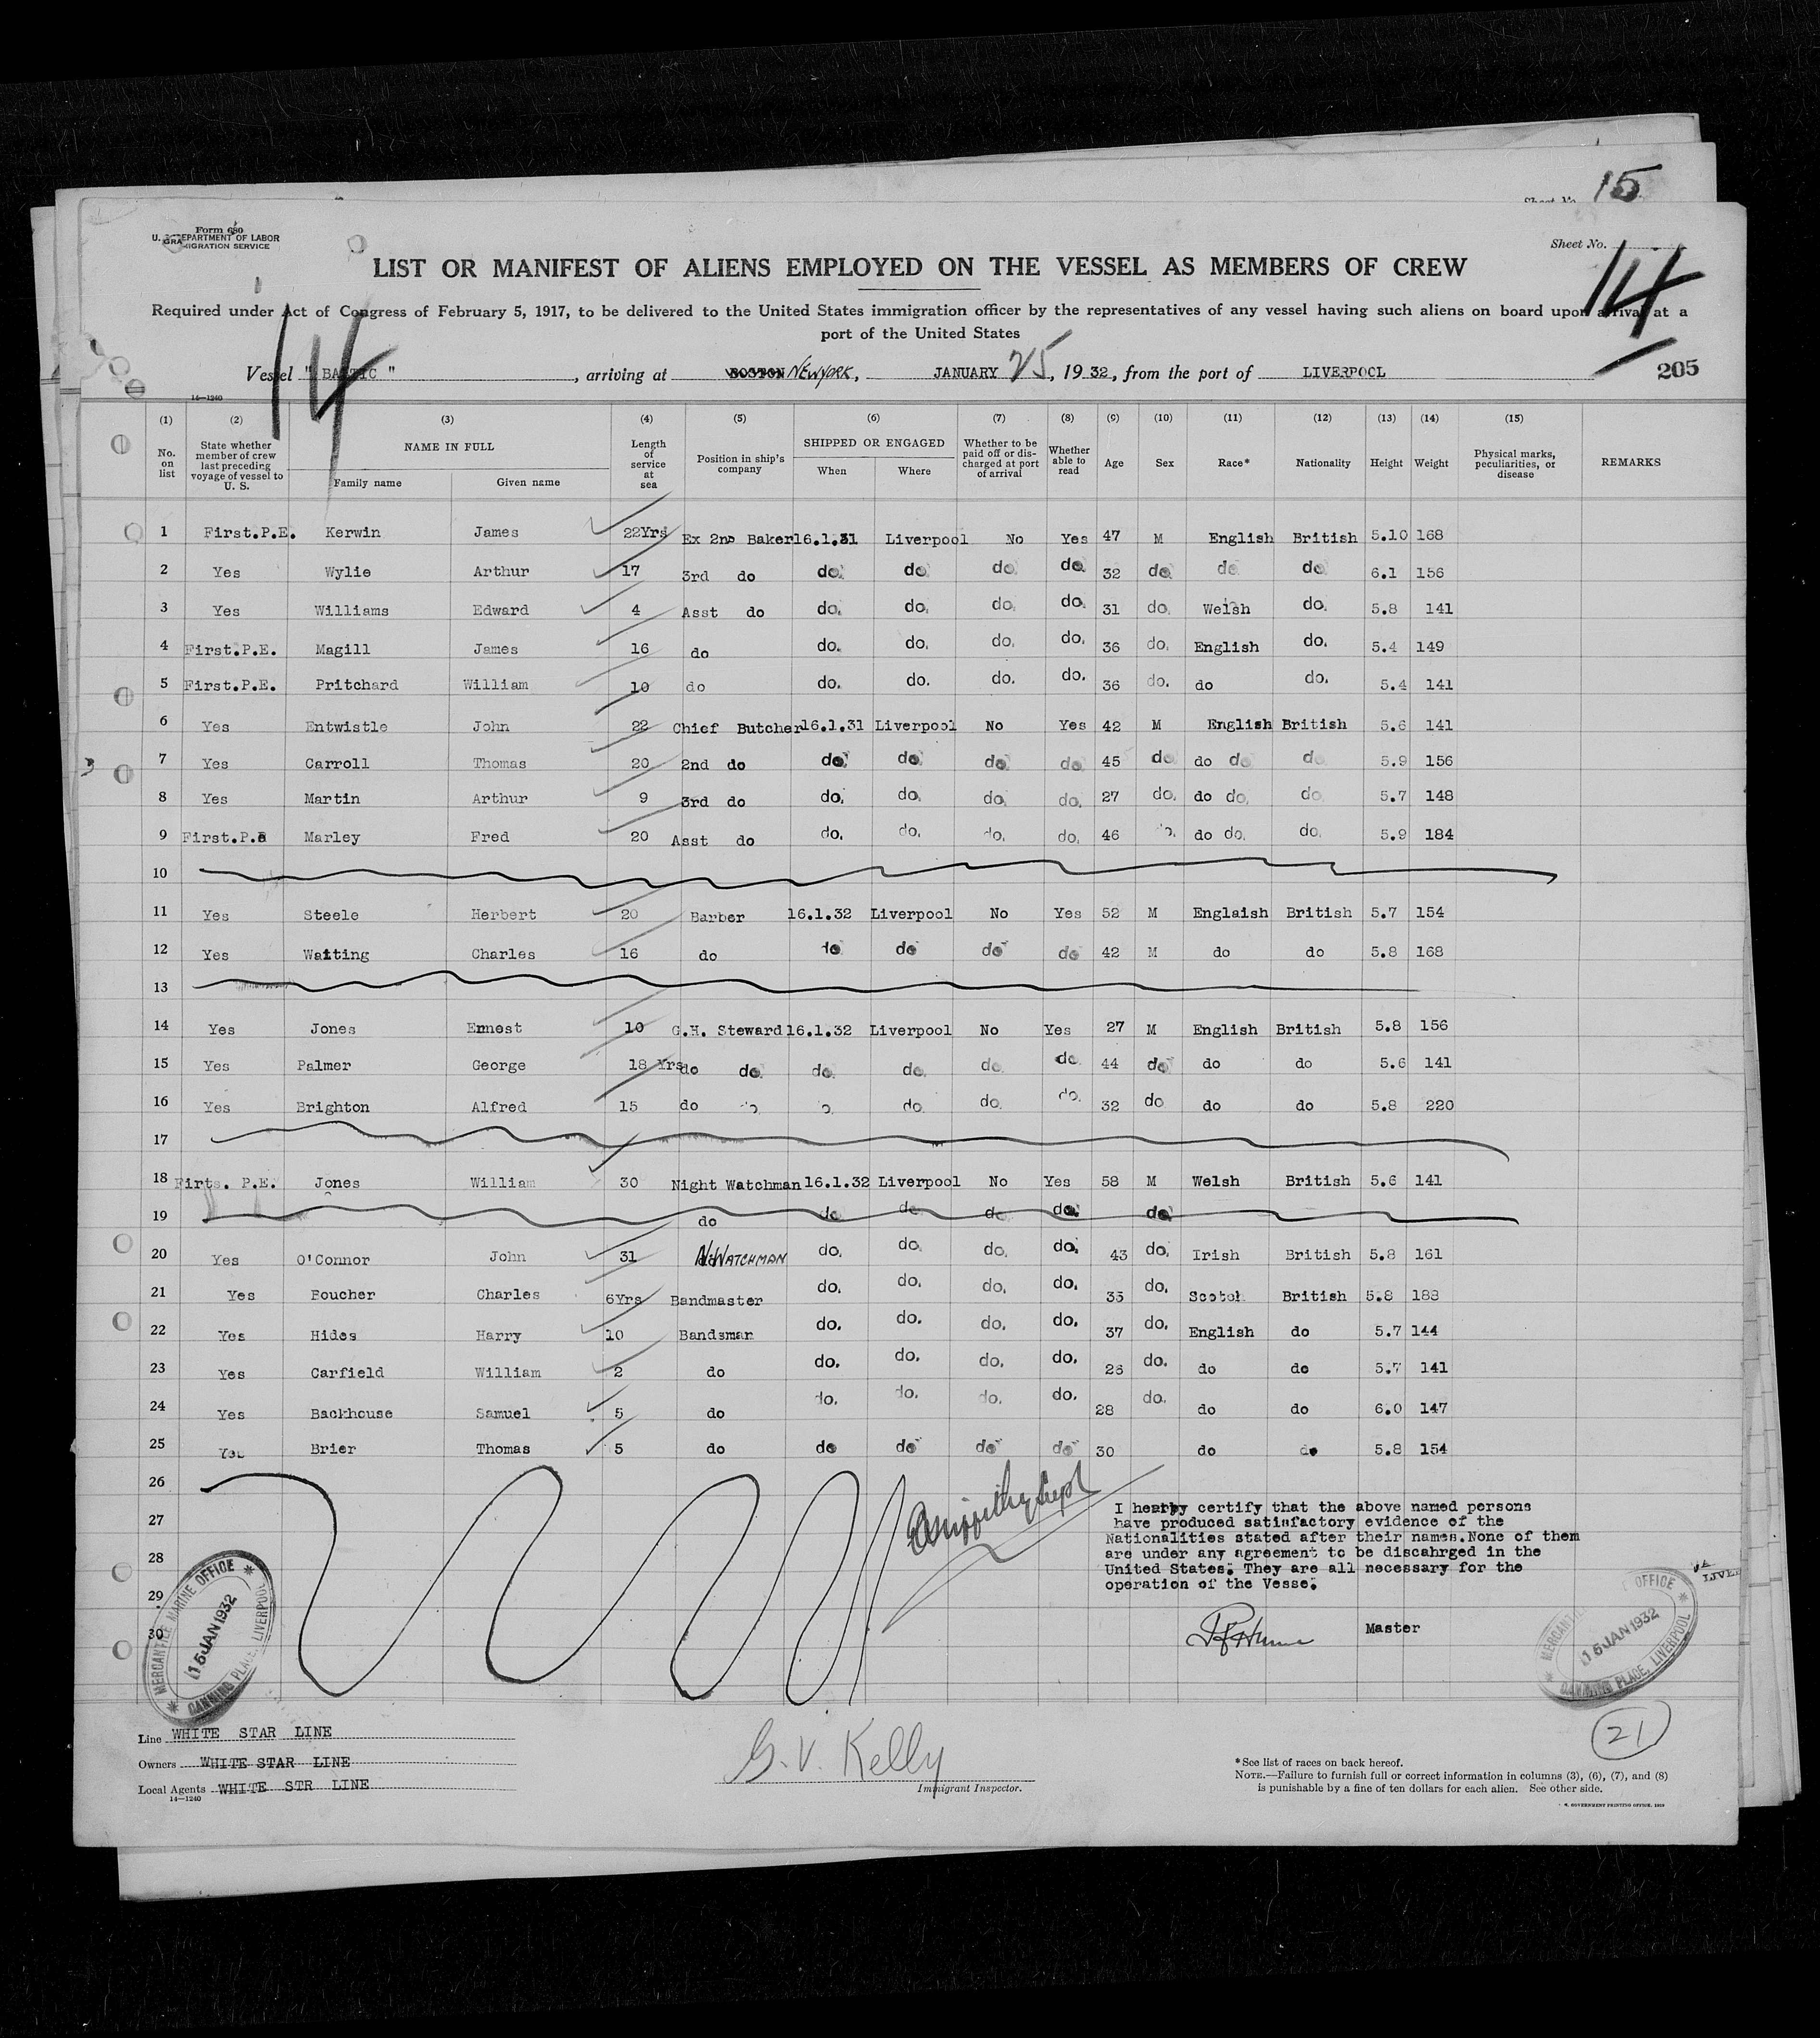 15
Sheet No.
Form 680
U. S. DEPARTMENT OF LABOR
IMMIGRATION SERVICE
Sheet No. 14
LIST OR MANIFEST OF ALIENS EMPLOYED ON THE VESSEL AS MEMBERS OF CREW
Required under Act of Congress of February 5, 1917, to be delivered to the United States immigration officer by the representatives of any vessel having such aliens on board upon arrival at a
port of the United States
14
Vessel " BALTIC ", arriving at BOSTON NEW YORK, JANUARY 25, 1932, from the port of LIVERPOOL
205
14—1240
(1) (2) (3) (4) (5) (6) (7) (8) (9) (10) (11) (12) (13) (14) (15)
No. on list State whether member of crew last preceding voyage of vessel to U. S. NAME IN FULL Family name Given name Length of service at sea Position in ship's company SHIPPED OR ENGAGED When Where Whether to be paid off or discharged at port of arrival Whether able to read Age Sex Race* Nationality Height Weight Physical marks, peculiarities, or disease REMARKS
1 First.P.E. Kerwin James 22Yrs Ex 2nd Baker 16.1.31 Liverpool No Yes 47 M English British 5.10 168
2 Yes Wylie Arthur 17 3rd do do. do. do. do. 32 do. do. do. 6.1 156
3 Yes Williams Edward 4 Asst do do. do. do. do. 31 do. Welsh do. 5.8 141
4 First.P.E. Magill James 16 do do. do. do. do. 36 do. English do. 5.4 149
5 First.P.E. Pritchard William 10 do do. do. do. do. 36 do. do do. 5.4 141
6 Yes Entwistle John 22 Chief Butcher 16.1.31 Liverpool No Yes 42 M English British 5.6 141
7 Yes Carroll Thomas 20 2nd do do. do. do. do. 45 do. do do. do. 5.9 156
8 Yes Martin Arthur 9 3rd do do. do. do. do. 27 do. do do. do. 5.7 148
9 First.P.E Marley Fred 20 Asst do do. do. do. do. 46 do. do do. do. 5.9 184
10
11 Yes Steele Herbert 20 Barber 16.1.32 Liverpool No Yes 52 M Englaish British 5.7 154
12 Yes Waiting Charles 16 do do do do do 42 M do do 5.8 168
13
14 Yes Jones Ernest 10 G.H. Steward 16.1.32 Liverpool No Yes 27 M English British 5.8 156
15 Yes Palmer George 18 Yrs do do. do. do. do. do. 44 do. do do 5.6 141
16 Yes Brighton Alfred 15 do do. do. do. do. do. 32 do do do 5.8 220
17
18 Firts. P.E. Jones William 30 Night Watchman 16.1.32 Liverpool No Yes 58 M Welsh British 5.6 141
19 do do do do do. do.
20 Yes O'Connor John 31 N.WATCHMAN do. do. do. do. 43 do. Irish British 5.8 161
21 Yes Boucher Charles 6Yrs Bandmaster do. do. do. do. 35 do. Scotch British 5.8 188
22 Yes Hides Harry 10 Bandsman do. do. do. do. 37 do. English do 5.7 144
23 Yes Carfield William 2 do do. do. do. do. 26 do. do do 5.7 141
24 Yes Backhouse Samuel 5 do do. do. do. do. 28 do. do do 6.0 147
25 Yes Brier Thomas 5 do do do do do 30 do do 5.8 154
26
27
28
29
30
I hearby certify that the above named persons
have produced satisfactory evidence of the
Nationalities stated after their names.None of them
are under any agreement to be discahrged in the
United States. They are all necessary for the
operation of the Vesse.
Master
MERCANTILE MARINE OFFICE
15 JAN 1932
CANNING PLACE, LIVERPOOL
MERCANTILE OFFICE
15 JAN 1932
CANNING PLACE, LIVERPOOL
21
Line WHITE STAR LINE
Owners WHITE STAR LINE
Local Agents WHITE STR LINE
14—1240
G.V. Kelly
Immigrant Inspector.
*See list of races on back hereof.
NOTE.—Failure to furnish full or correct information in columns (3), (6), (7), and (8)
is punishable by a fine of ten dollars for each alien. See other side.